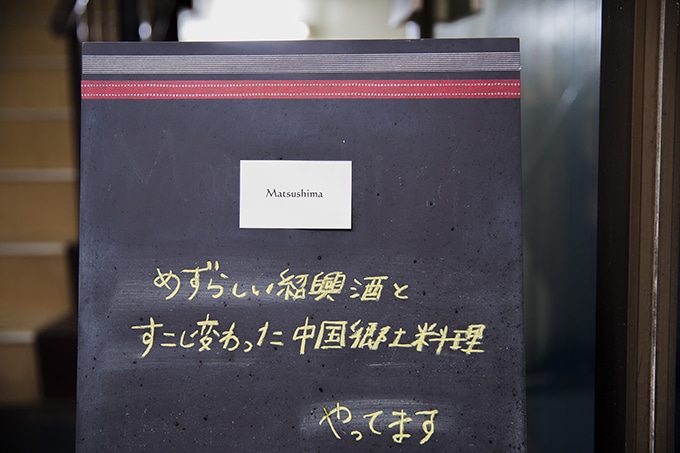 Matsushima
めずらしい紹興酒と
すこし変わった中国郷土料理
やってます